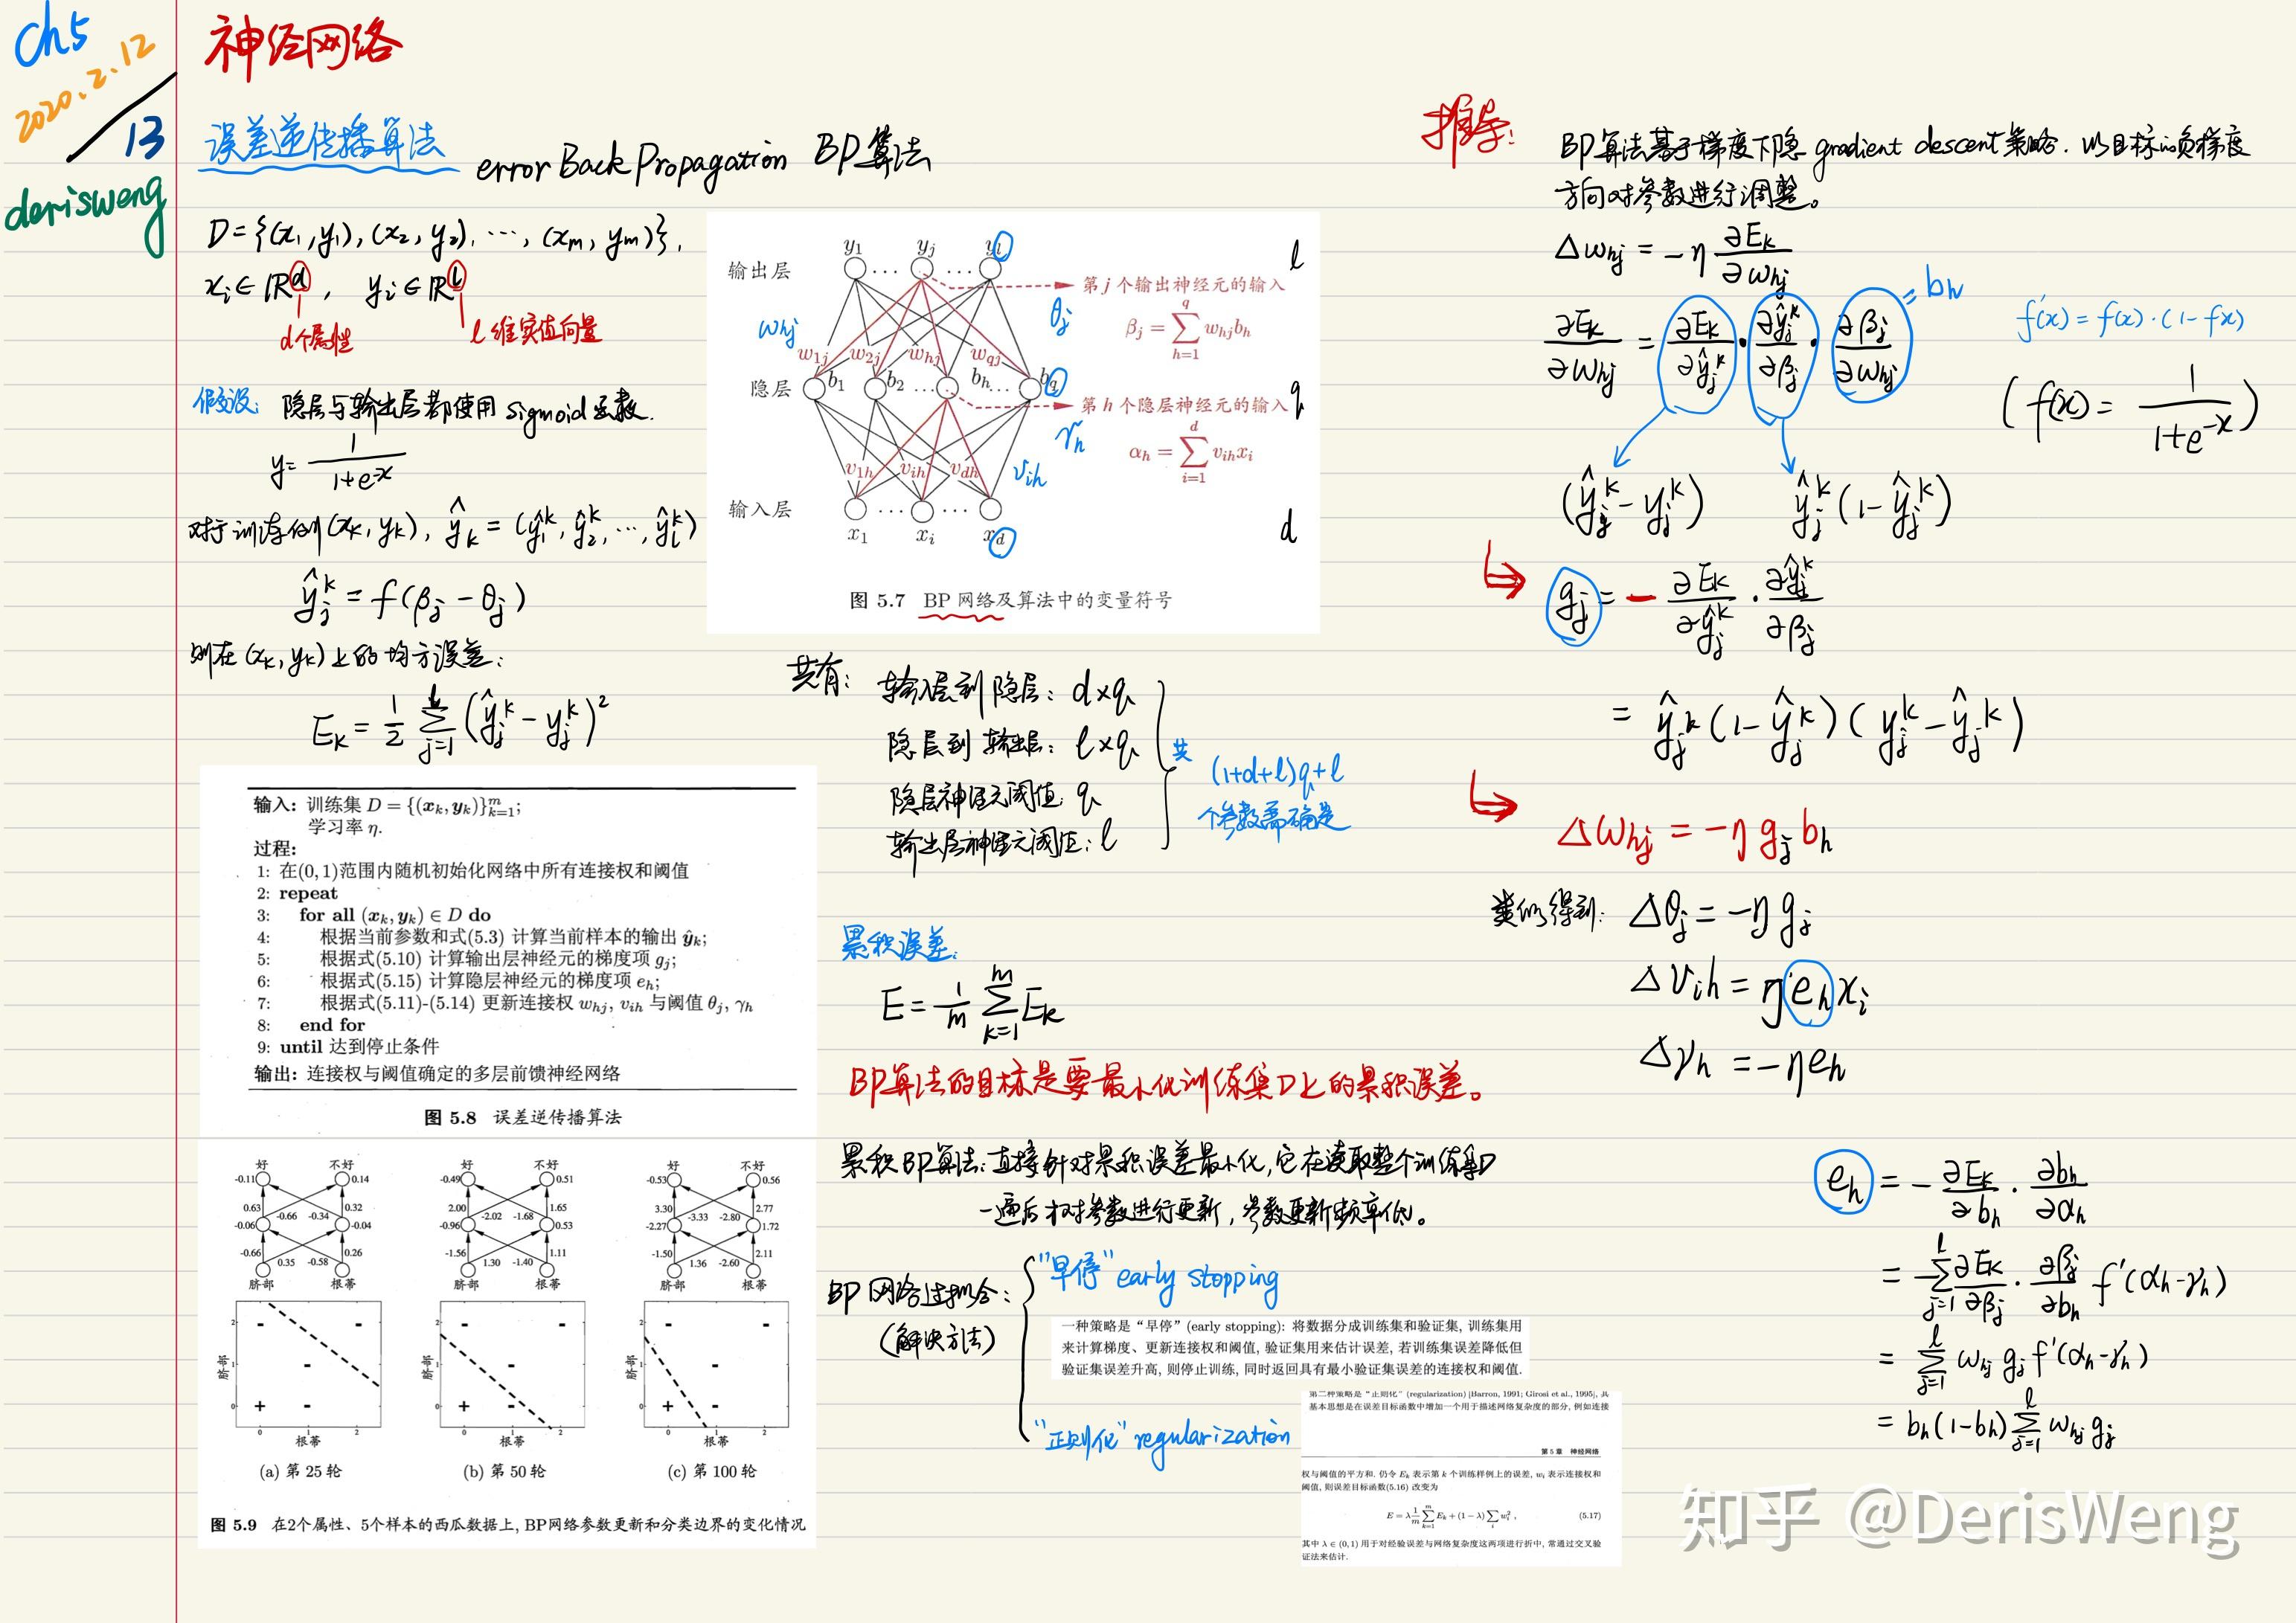 ch5
2020.2.12
/13
derisweng
神经网络
误差逆传播算法 error Back Propagation BP算法
D={(x₁,y₁),(x₂,y₂),…,(xₘ,yₘ)},
xᵢ∈ℝᵈ, yᵢ∈ℝˡ
d个属性
l维实值向量
假设: 隐层与输出层都使用sigmoid函数.
y=1/(1+e⁻ˣ)
对于训练例(x_k,y_k), ŷ_k=(ŷ₁ᵏ,ŷ₂ᵏ,…,ŷ_lᵏ)
ŷⱼᵏ=f(βⱼ-θⱼ)
则在(x_k,y_k)上的均方误差:
E_k=1/2 Σ_{j=1}^{l}(ŷⱼᵏ-yⱼᵏ)²
y₁ yⱼ y_l
l
输出层
第 j 个输出神经元的输入
βⱼ = Σ_{h=1}^{q} w_{hj}b_h
θⱼ
w_{hj}
w_{1j} w_{2j} w_{hj} w_{qj}
隐层
b₁ b₂ … b_h… b_q
q
第 h 个隐层神经元的输入
α_h = Σ_{i=1}^{d} v_{ih}xᵢ
γ_h
v_{1h} v_{ih} v_{dh}
v_{ih}
输入层
x₁ xᵢ x_d
d
图 5.7 BP 网络及算法中的变量符号
共有: 输入层到隐层: d×q
隐层到输出层: l×q
隐层神经元阈值: q
输出层神经元阈值: l
共 (1+d+l)q+l
个参数需确定
输入: 训练集 D = {(x_k, y_k)}_{k=1}^{m};
学习率 η.
过程:
1: 在(0,1)范围内随机初始化网络中所有连接权和阈值
2: repeat
3: for all (x_k, y_k) ∈ D do
4: 根据当前参数和式(5.3) 计算当前样本的输出 ŷ_k;
5: 根据式(5.10) 计算输出层神经元的梯度项 gⱼ;
6: 根据式(5.15) 计算隐层神经元的梯度项 e_h;
7: 根据式(5.11)-(5.14) 更新连接权 w_{hj}, v_{ih} 与阈值 θⱼ, γ_h
8: end for
9: until 达到停止条件
输出: 连接权与阈值确定的多层前馈神经网络
图 5.8 误差逆传播算法
好 不好
-0.11 0.14
0.63 -0.66 -0.34 0.32
-0.06 -0.04
-0.66 0.35 -0.58 0.26
脐部 根蒂
好 不好
-0.49 0.51
2.00 -2.02 -1.68 1.65
-0.96 0.53
-1.56 1.30 -1.40 1.11
脐部 根蒂
好 不好
-0.53 0.56
3.30 -3.33 -2.80 2.77
-2.27 1.72
-1.50 1.36 -2.60 2.11
脐部 根蒂
脐部 2 1 0
0 1 2
根蒂
脐部 2 1 0
0 1 2
根蒂
脐部 2 1 0
0 1 2
根蒂
(a) 第 25 轮
(b) 第 50 轮
(c) 第 100 轮
图 5.9 在2个属性、5个样本的西瓜数据上, BP网络参数更新和分类边界的变化情况
累积误差:
E=1/m Σ_{k=1}^{m}E_k
BP算法的目标是要最小化训练集D上的累积误差。
累积BP算法: 直接针对累积误差最小化, 它在读取整个训练集D
一遍后才对参数进行更新, 参数更新频率低。
BP网络过拟合:
(解决方法)
"早停" early stopping
一种策略是“早停” (early stopping): 将数据分成训练集和验证集, 训练集用
来计算梯度、更新连接权和阈值, 验证集用来估计误差, 若训练集误差降低但
验证集误差升高, 则停止训练, 同时返回具有最小验证集误差的连接权和阈值.
"正则化" regularization
第二种策略是“正则化” (regularization) [Barron, 1991; Girosi et al., 1995], 其
基本思想是在误差目标函数中增加一个用于描述网络复杂度的部分, 例如连接
第 5 章 神经网络
权与阈值的平方和. 仍令 E_k 表示第 k 个训练样例上的误差, wᵢ 表示连接权和
阈值, 则误差目标函数(5.16) 改变为
E = λ 1/m Σ_{k=1}^{m} E_k + (1-λ) Σᵢ wᵢ² , (5.17)
其中 λ ∈ (0,1) 用于对经验误差与网络复杂度这两项进行折中, 常通过交叉验
证法来估计.
推导:
BP算法基于梯度下降 gradient descent策略. 以目标的负梯度
方向对参数进行调整。
Δw_{hj}=-η ∂E_k/∂w_{hj}
∂E_k/∂w_{hj} = ∂E_k/∂ŷⱼᵏ · ∂ŷⱼᵏ/∂βⱼ · ∂βⱼ/∂w_{hj} = b_h
f'(x)=f(x)·(1-f(x)
(f(x)=1/(1+e⁻ˣ))
(ŷⱼᵏ-yⱼᵏ) ŷⱼᵏ(1-ŷⱼᵏ)
gⱼ=-∂E_k/∂ŷⱼᵏ · ∂ŷⱼᵏ/∂βⱼ
=ŷⱼᵏ(1-ŷⱼᵏ)(yⱼᵏ-ŷⱼᵏ)
Δw_{hj}=-η gⱼ b_h
类似得到: Δθⱼ=-η gⱼ
Δv_{ih}=η e_h xᵢ
Δγ_h=-η e_h
e_h=-∂E_k/∂b_h · ∂b_h/∂α_h
=-Σ_{j=1}^{l} ∂E_k/∂βⱼ · ∂βⱼ/∂b_h f'(α_h-γ_h)
=Σ_{j=1}^{l} w_{hj} gⱼ f'(α_h-γ_h)
=b_h(1-b_h)Σ_{j=1}^{l} w_{hj} gⱼ
知乎 @DerisWeng